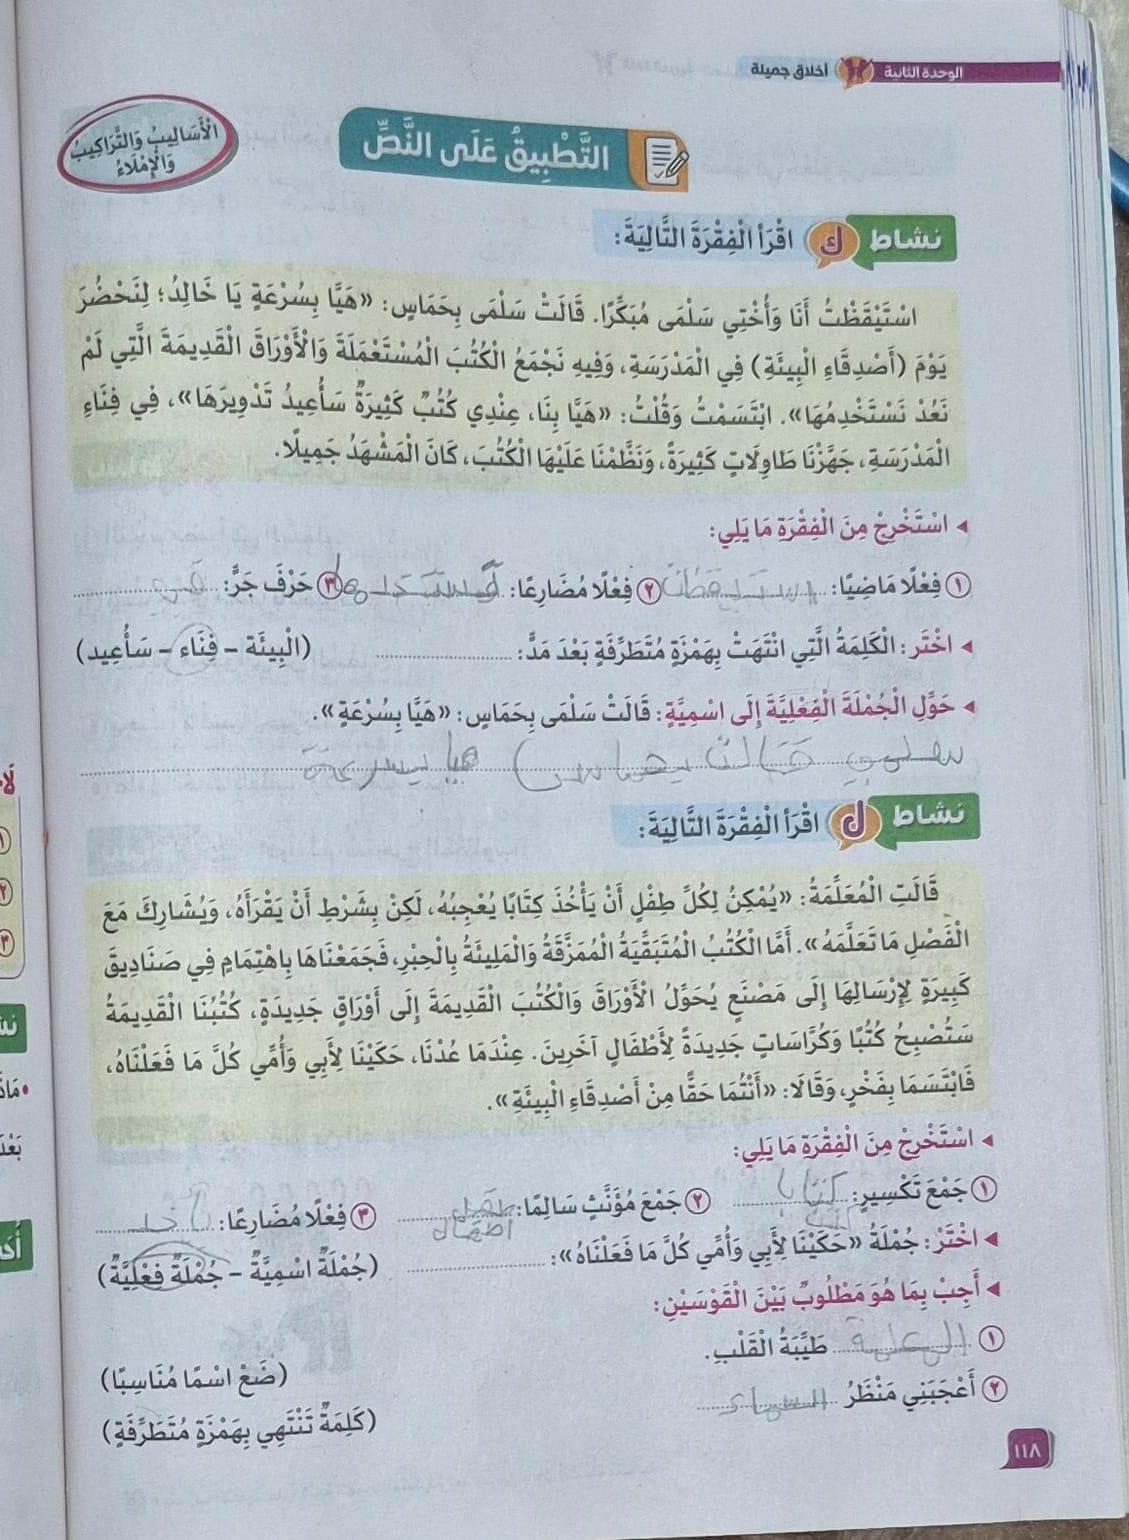 الوحدة الثانية أخلاق جميلة
التَّطْبِيقُ عَلَى النَّصِّ
الْأَسَالِيبُ وَالتَّرَاكِيبُ
وَالْإِمْلَاءُ
نشاط ك اقْرَأِ الْفِقْرَةَ التَّالِيَةَ:
اسْتَيْقَظْتُ أَنَا وَأُخْتِي سَلْمَى مُبَكِّرًا. قَالَتْ سَلْمَى بِحَمَاسٍ: «هَيَّا بِسُرْعَةٍ يَا خَالِدُ؛ لِنَحْضُرَ
يَوْمَ (أَصْدِقَاءِ الْبِيئَةِ) فِي الْمَدْرَسَةِ، وَفِيهِ نَجْمَعُ الْكُتُبَ الْمُسْتَعْمَلَةَ وَالْأَوْرَاقَ الْقَدِيمَةَ الَّتِي لَمْ
نَعُدْ نَسْتَخْدِمُهَا». ابْتَسَمْتُ وَقُلْتُ: «هَيَّا بِنَا، عِنْدِي كُتُبٌ كَثِيرَةٌ سَأُعِيدُ تَدْوِيرَهَا»، فِي فِنَاءِ
الْمَدْرَسَةِ، جَهَّزْنَا طَاوِلَاتٍ كَثِيرَةً، وَنَظَّمْنَا عَلَيْهَا الْكُتُبَ، كَانَ الْمَشْهَدُ جَمِيلًا.
اسْتَخْرِجْ مِنَ الْفِقْرَةِ مَا يَلِي:
١ فِعْلًا مَاضِيًا: استيقظت ٢ فِعْلًا مُضَارِعًا: نستخدمها ٣ حَرْفَ جَرٍّ: في
اخْتَرْ: الْكَلِمَةُ الَّتِي انْتَهَتْ بِهَمْزَةٍ مُتَطَرِّفَةٍ بَعْدَ مَدٍّ: (الْبِيئَة - فِنَاء - سَأُعِيد)
حَوِّلِ الْجُمْلَةَ الْفِعْلِيَّةَ إِلَى اسْمِيَّةٍ: قَالَتْ سَلْمَى بِحَمَاسٍ: «هَيَّا بِسُرْعَةٍ».
سلمي قالت بحماس هيا بسرعة
نشاط ل اقْرَأِ الْفِقْرَةَ التَّالِيَةَ:
قَالَتِ الْمُعَلِّمَةُ: «يُمْكِنُ لِكُلِّ طِفْلٍ أَنْ يَأْخُذَ كِتَابًا يُعْجِبُهُ، لَكِنْ بِشَرْطِ أَنْ يَقْرَأَهُ، وَيُشَارِكَ مَعَ
الْفَصْلِ مَا تَعَلَّمَهُ». أَمَّا الْكُتُبُ الْمُتَبَقِّيَةُ الْمُمَزَّقَةُ وَالْمَلِيئَةُ بِالْحِبْرِ، فَجَمَعْنَاهَا بِاهْتِمَامٍ فِي صَنَادِيقَ
كَبِيرَةٍ لِإِرْسَالِهَا إِلَى مَصْنَعٍ يُحَوِّلُ الْأَوْرَاقَ وَالْكُتُبَ الْقَدِيمَةَ إِلَى أَوْرَاقٍ جَدِيدَةٍ، كُتُبُنَا الْقَدِيمَةُ
سَتُصْبِحُ كُتُبًا وَكُرَّاسَاتٍ جَدِيدَةً لِأَطْفَالٍ آخَرِينَ. عِنْدَمَا عُدْنَا، حَكَيْنَا لِأَبِي وَأُمِّي كُلَّ مَا فَعَلْنَاهُ،
فَابْتَسَمَا بِفَخْرٍ، وَقَالَا: «أَنْتُمَا حَقًّا مِنْ أَصْدِقَاءِ الْبِيئَةِ».
اسْتَخْرِجْ مِنَ الْفِقْرَةِ مَا يَلِي:
١ جَمْعَ تَكْسِيرٍ: كتابا ٢ جَمْعَ مُؤَنَّثٍ سَالِمًا: طفل ٣ فِعْلًا مُضَارِعًا:
اخْتَرْ: جُمْلَةُ «حَكَيْنَا لِأَبِي وَأُمِّي كُلَّ مَا فَعَلْنَاهُ»: (جُمْلَةٌ اسْمِيَّةٌ - جُمْلَةٌ فِعْلِيَّةٌ)
أَجِبْ بِمَا هُوَ مَطْلُوبٌ بَيْنَ الْقَوْسَيْنِ:
١ المعلمة طَيِّبَةُ الْقَلْبِ. (ضَعْ اسْمًا مُنَاسِبًا)
٢ أَعْجَبَنِي مَنْظَرُ السماء (كَلِمَةٌ تَنْتَهِي بِهَمْزَةٍ مُتَطَرِّفَةٍ)
١١٨